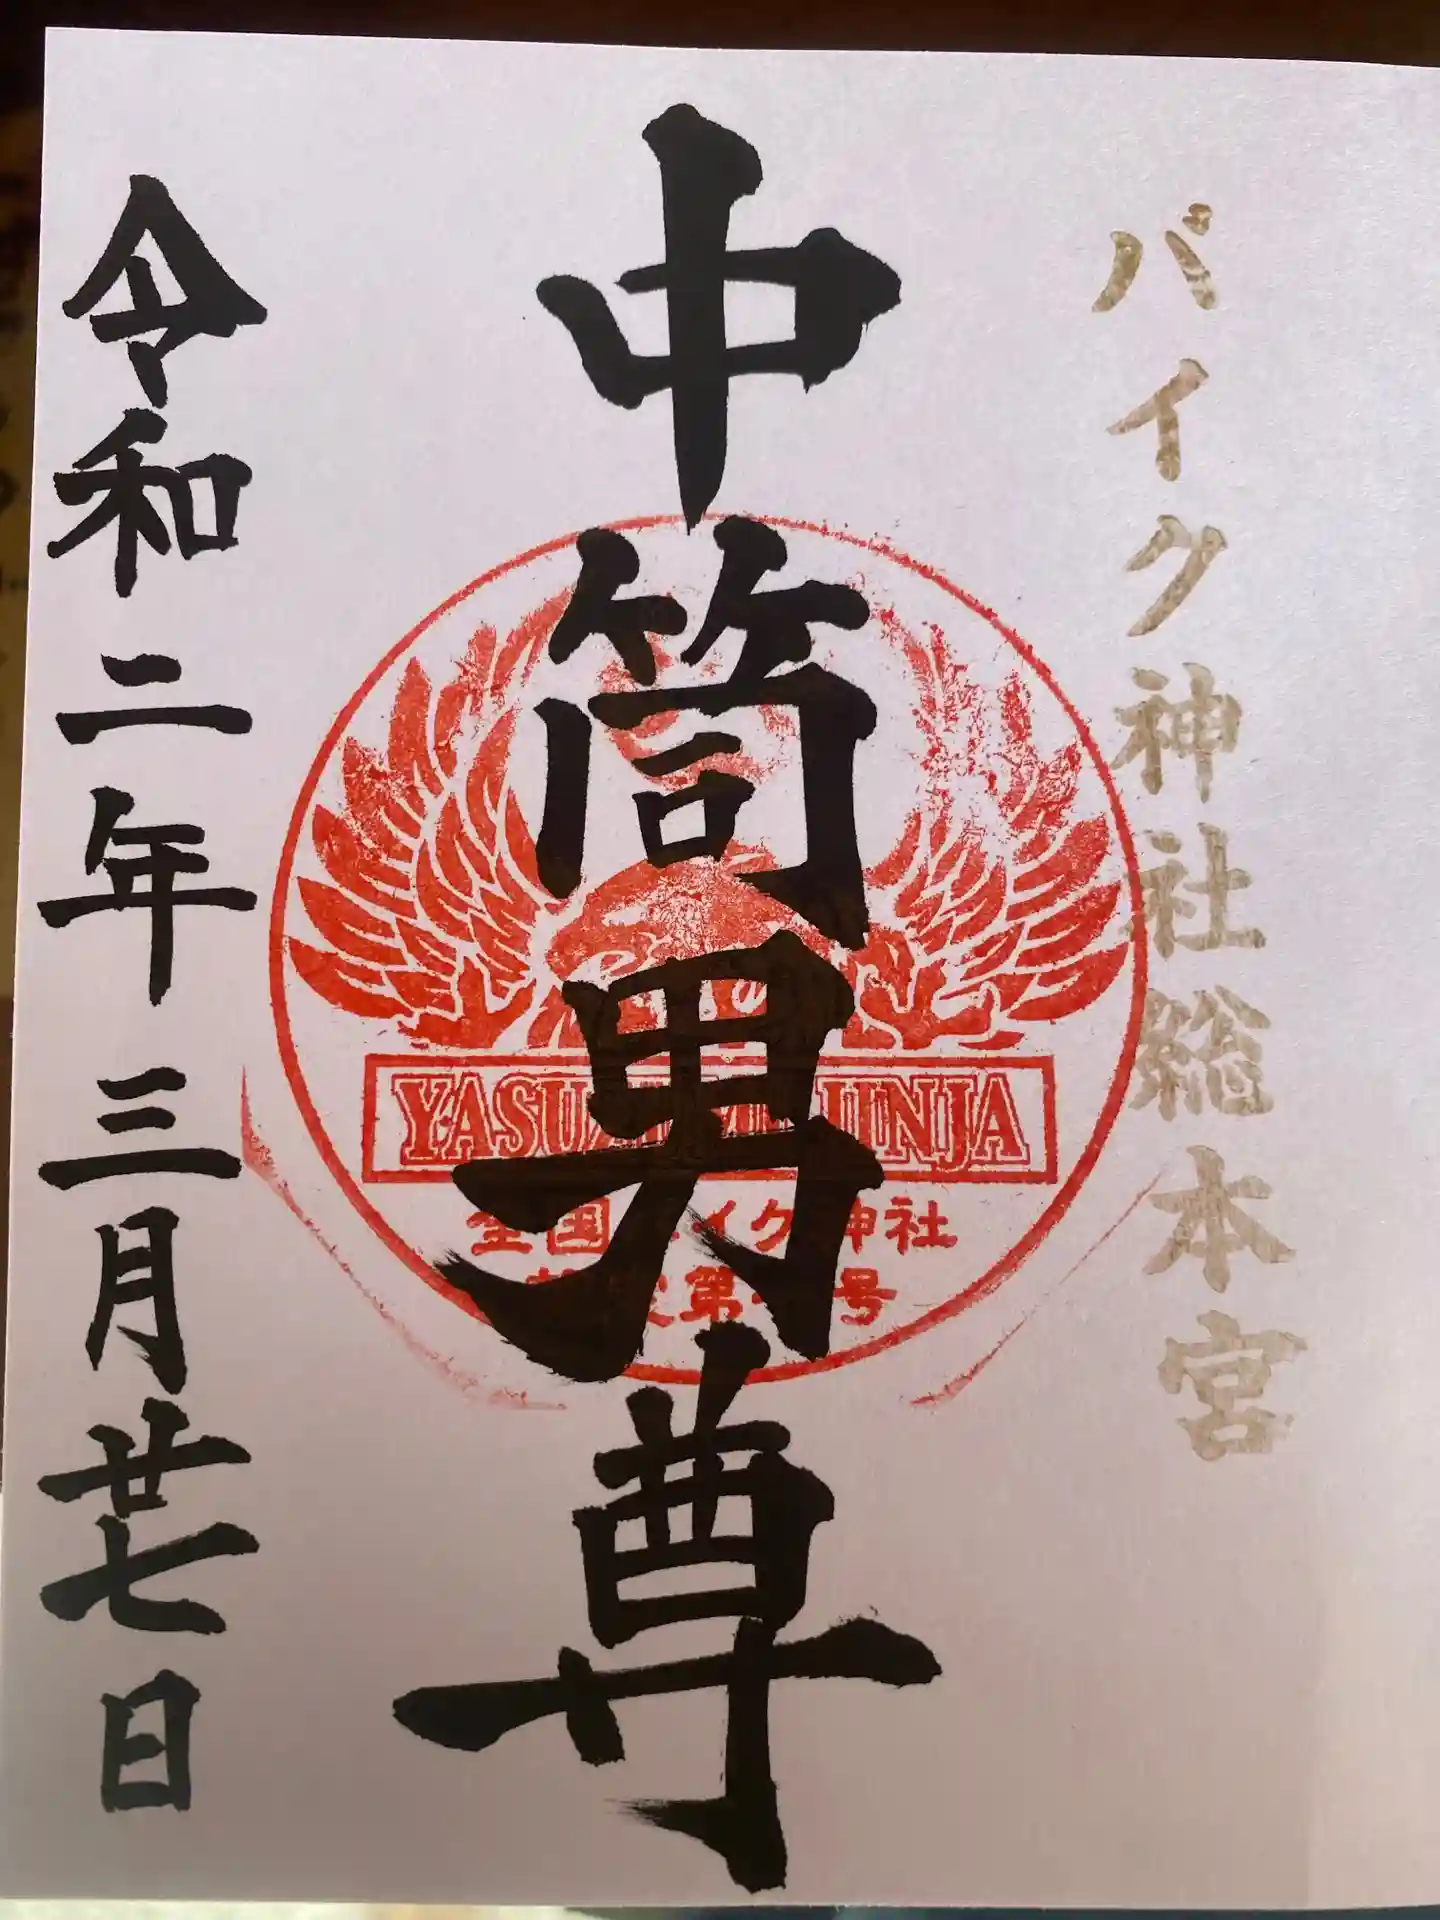 バイク神社総本宮
中筒男尊
YASUZUMI JINJA
全国バイク神社
第 号
令和二年三月廿七日